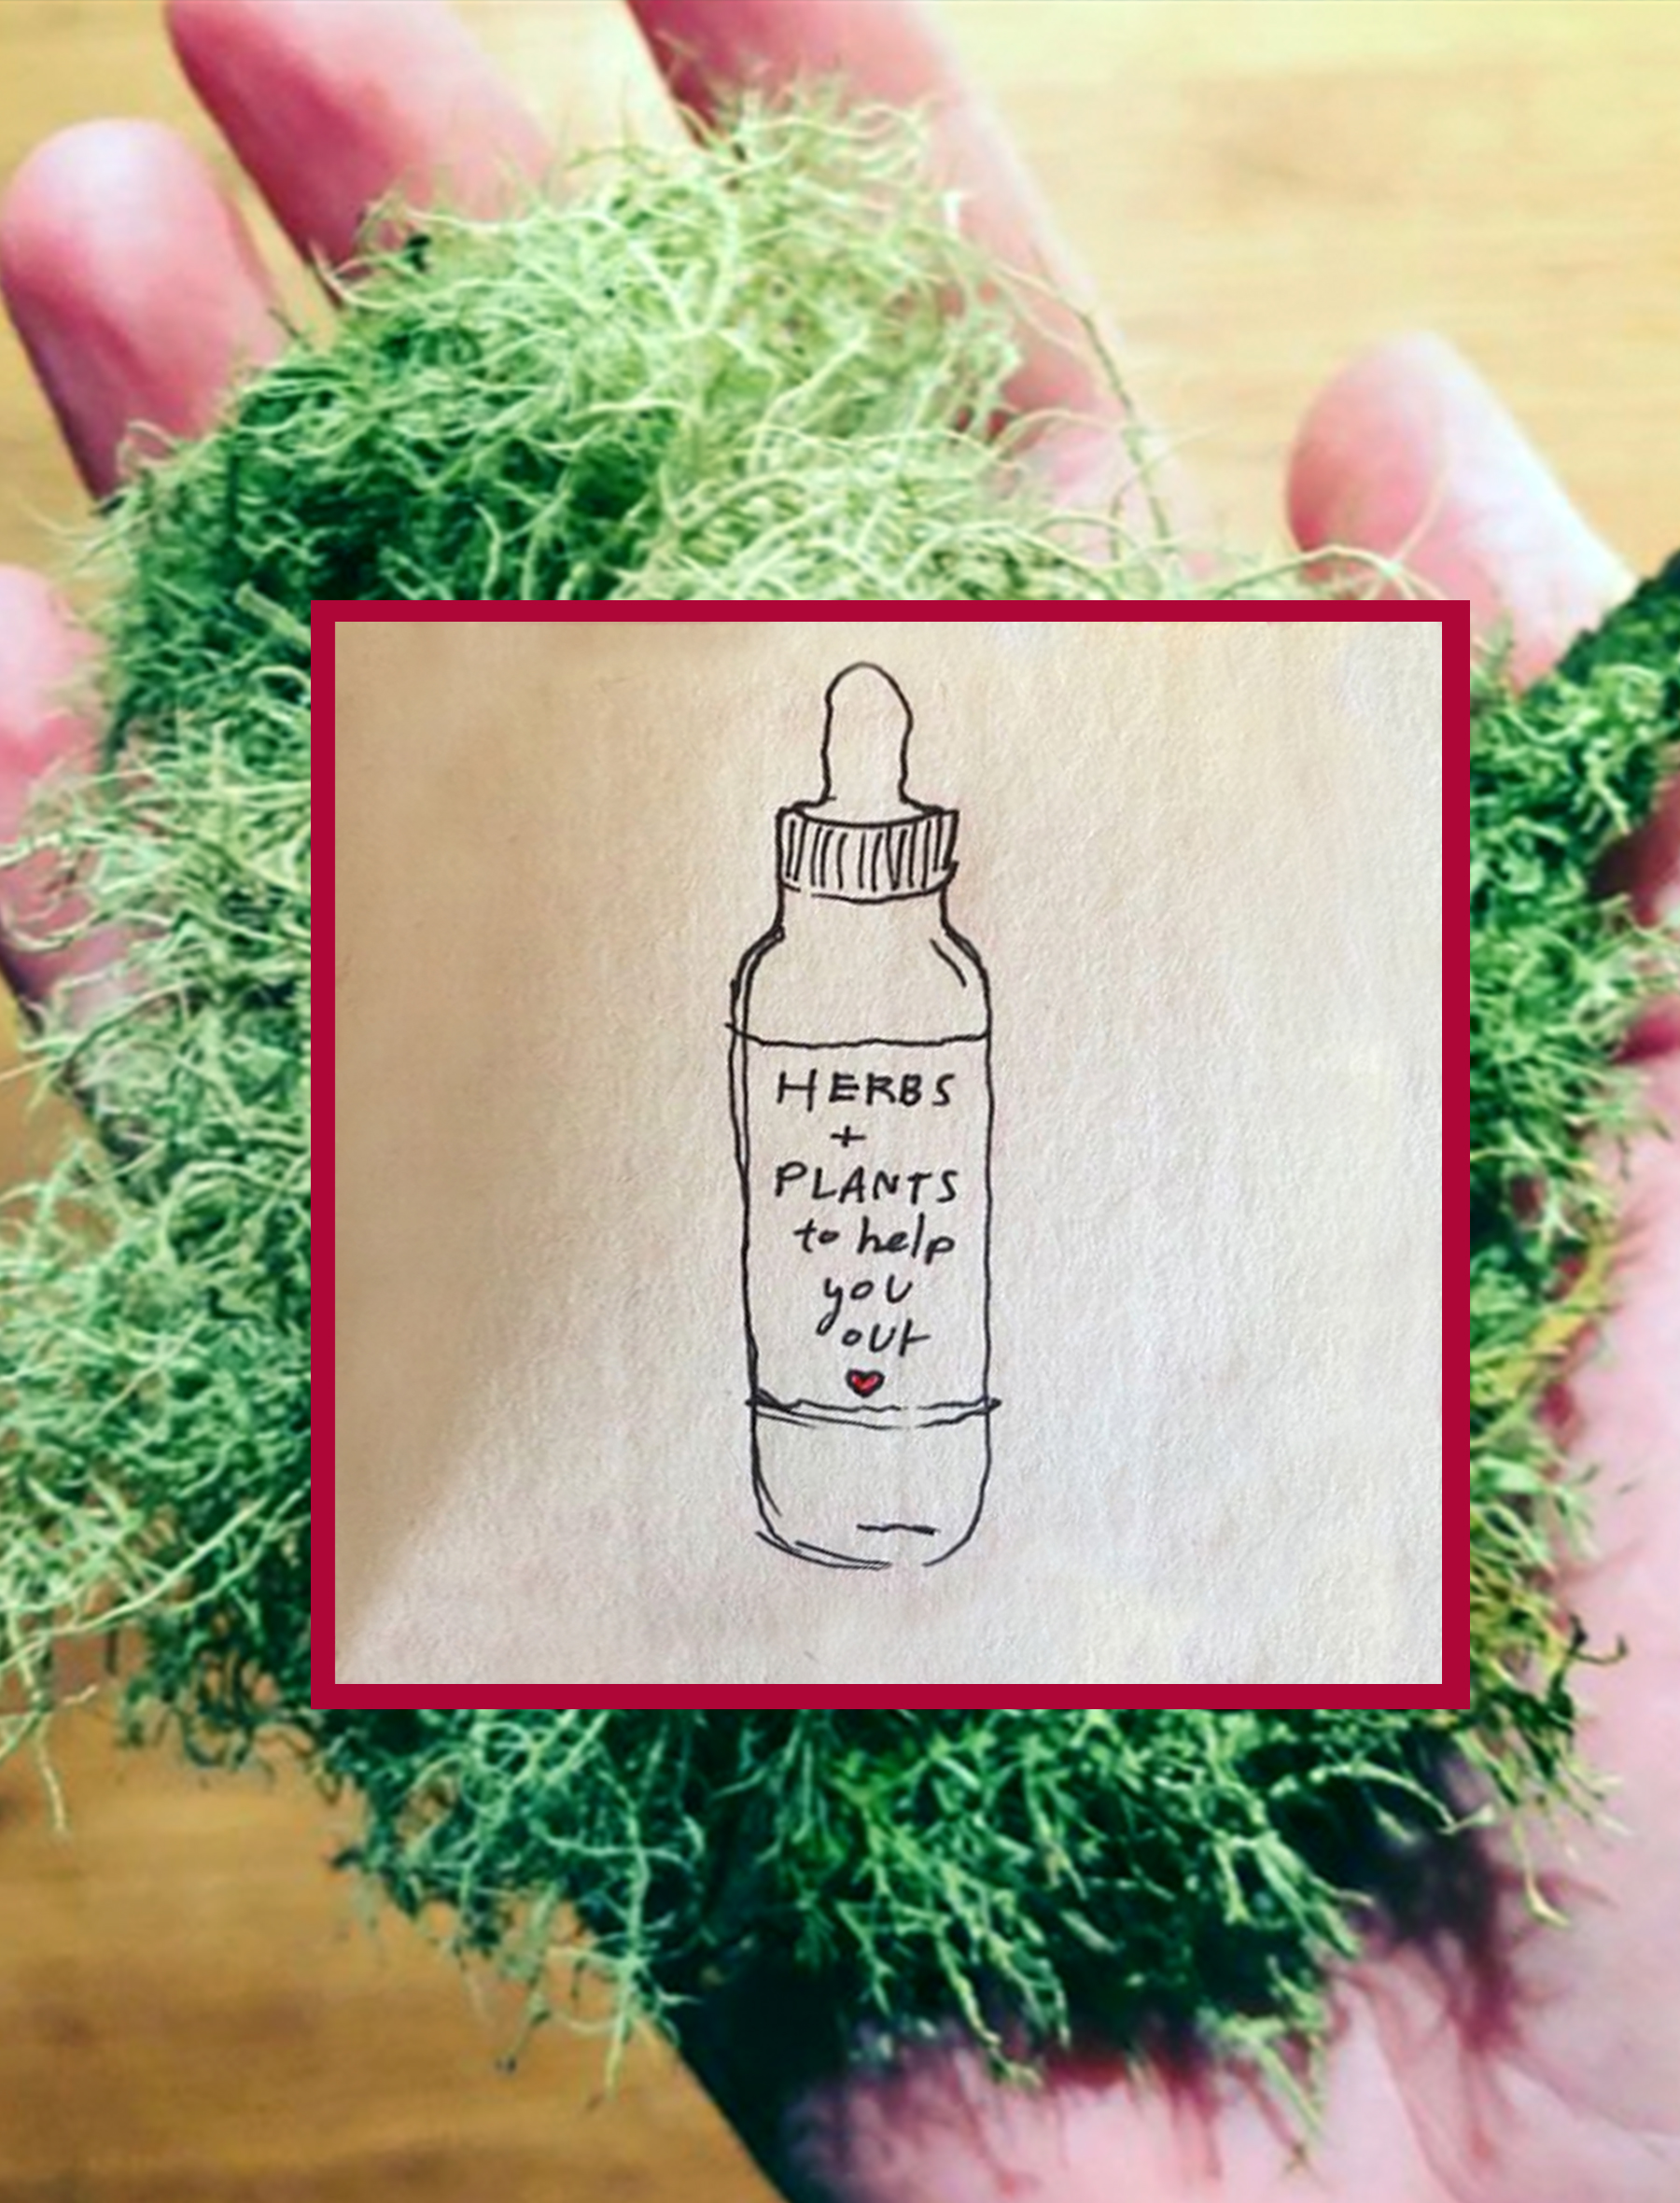 HERBS
+
PLANTS
to help
you
out